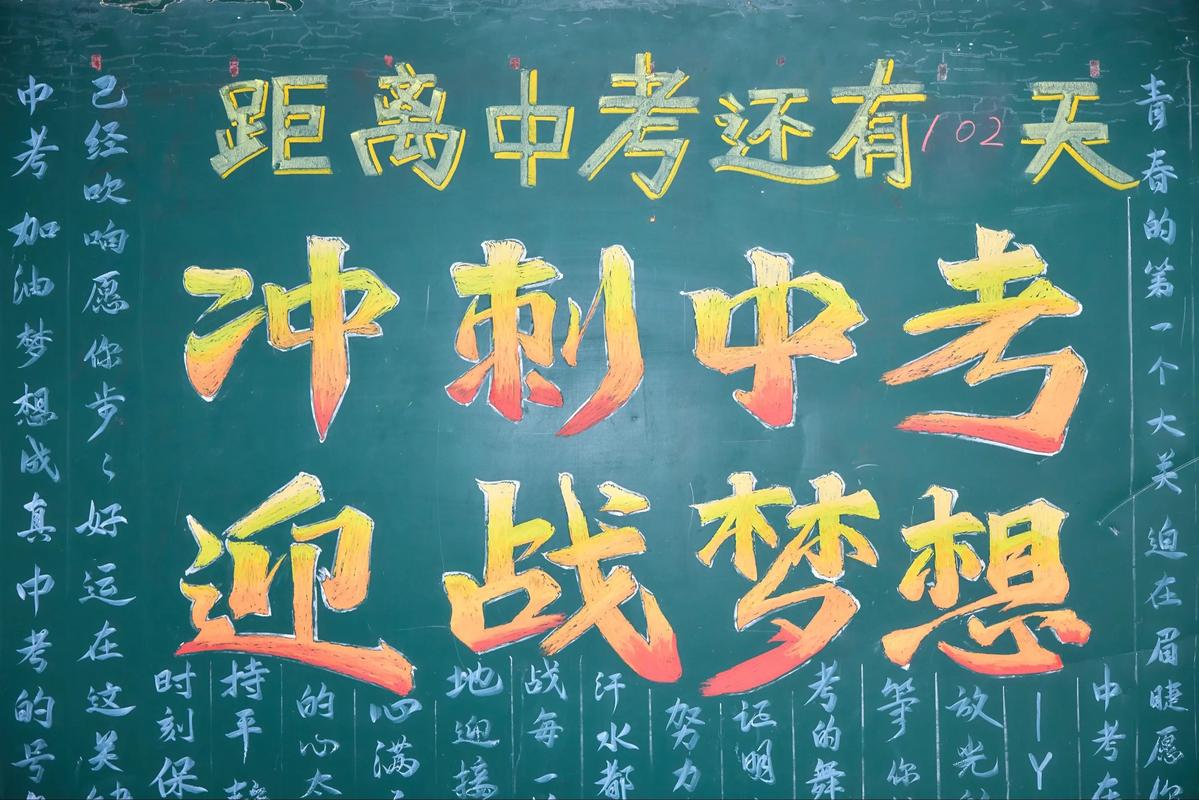 距离中考还有102天
冲刺中考
迎战梦想
中考加油梦想成真中考的号
已经吹响愿你步〻好运在这关
时刻保
持平
的心太
心满
地迎接
战每一
汗水都
努力
证明
考的舞
等你
放光
Y
中考在
青春的第一个大关迫在眉睫愿你